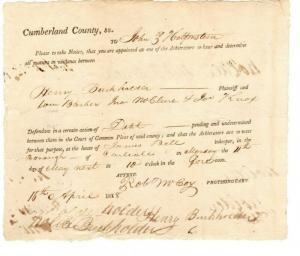 Cumberland County, ss.
TO John Z Hottenstein
Please to take Notice, that you are appointed as one of the Arbitrators to hear and determine
all matters in variance between
Henry Burkholder Plaintiff and
McClure & Knox
Defendants in a certain action of Debt pending and undetermined
between them in the Court of Common Pleas of said county; and that the Arbitrators are to meet
for that purpose, at the house of James Bell inkeeper, in the
Borough of Carlisle on Monday the 11th
of May next at 10 o'clock in the fore noon
ATTEST
Rob McCoy PROTHONOTARY
18th April
Henry Burkholder
Burkholder